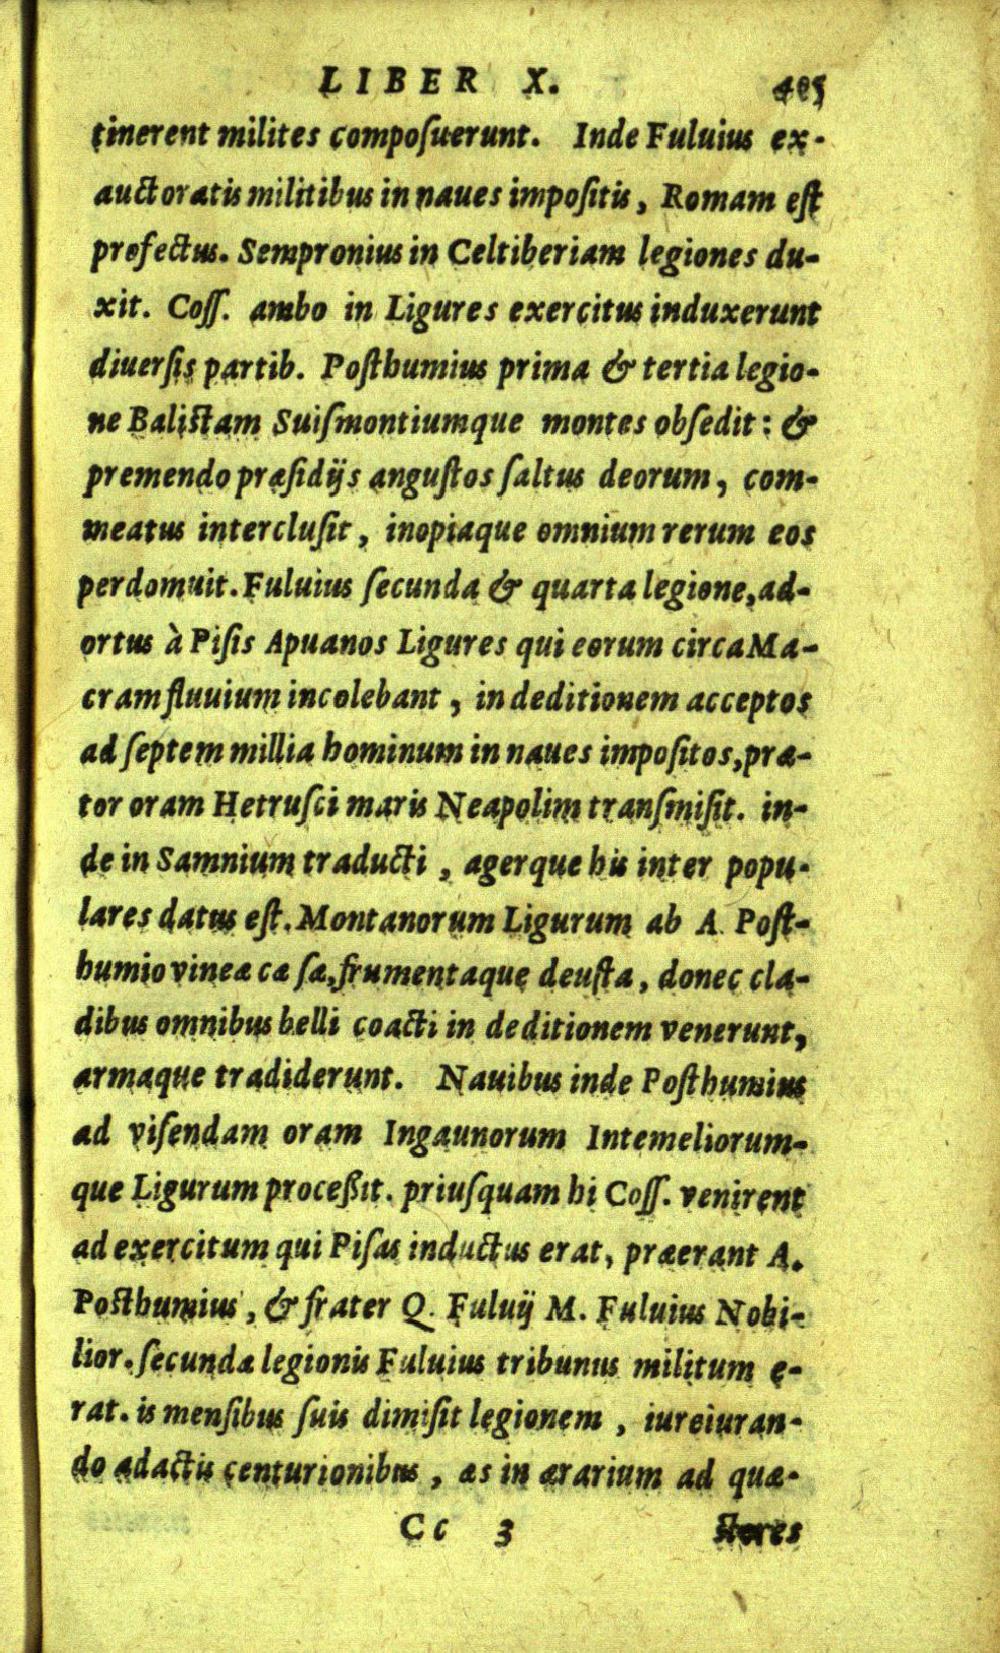 LIBER X. 405
tinerent milites composuerunt. Inde Fuluius ex-
auctoratis militibus in naues impositis, Romam est
profectus. Sempronius in Celtiberiam legiones du-
xit. Coss. ambo in Ligures exercitus induxerunt
diuersis partib. Posthumius prima & tertia legio-
ne Balistam Suismontiumque montes obsedit: &
premendo præsidijs angustos saltus deorum, com-
meatus interclusit, inopiaque omnium rerum eos
perdomuit. Fuluius secunda & quarta legione, ad-
ortus à Pisis Apuanos Ligures qui eorum circa Ma-
cram fluuium incolebant, in deditionem acceptos
ad septem millia hominum in naues impositos, præ-
tor oram Hetrusci maris Neapolim transmisit. in-
de in Samnium traducti, agerque his inter popu-
lares datus est. Montanorum Ligurum ab A. Post-
humio vineæ cæsæ, frumentaque deusta, donec cla-
dibus omnibus belli coacti in deditionem venerunt,
armaque tradiderunt. Nauibus inde Posthumius
ad visendam oram Ingaunorum Intemeliorum-
que Ligurum processit. priusquam hi Coss. venirent
ad exercitum qui Pisas inductus erat, præerant A.
Posthumius, & frater Q. Fuluij M. Fuluius Nobi-
lior. secundæ legionis Fuluius tribunus militum e-
rat. is mensibus suis dimisit legionem, iureiuran-
do adactis centurionibus, æs in ærarium ad quæ-
Cc 3 stores